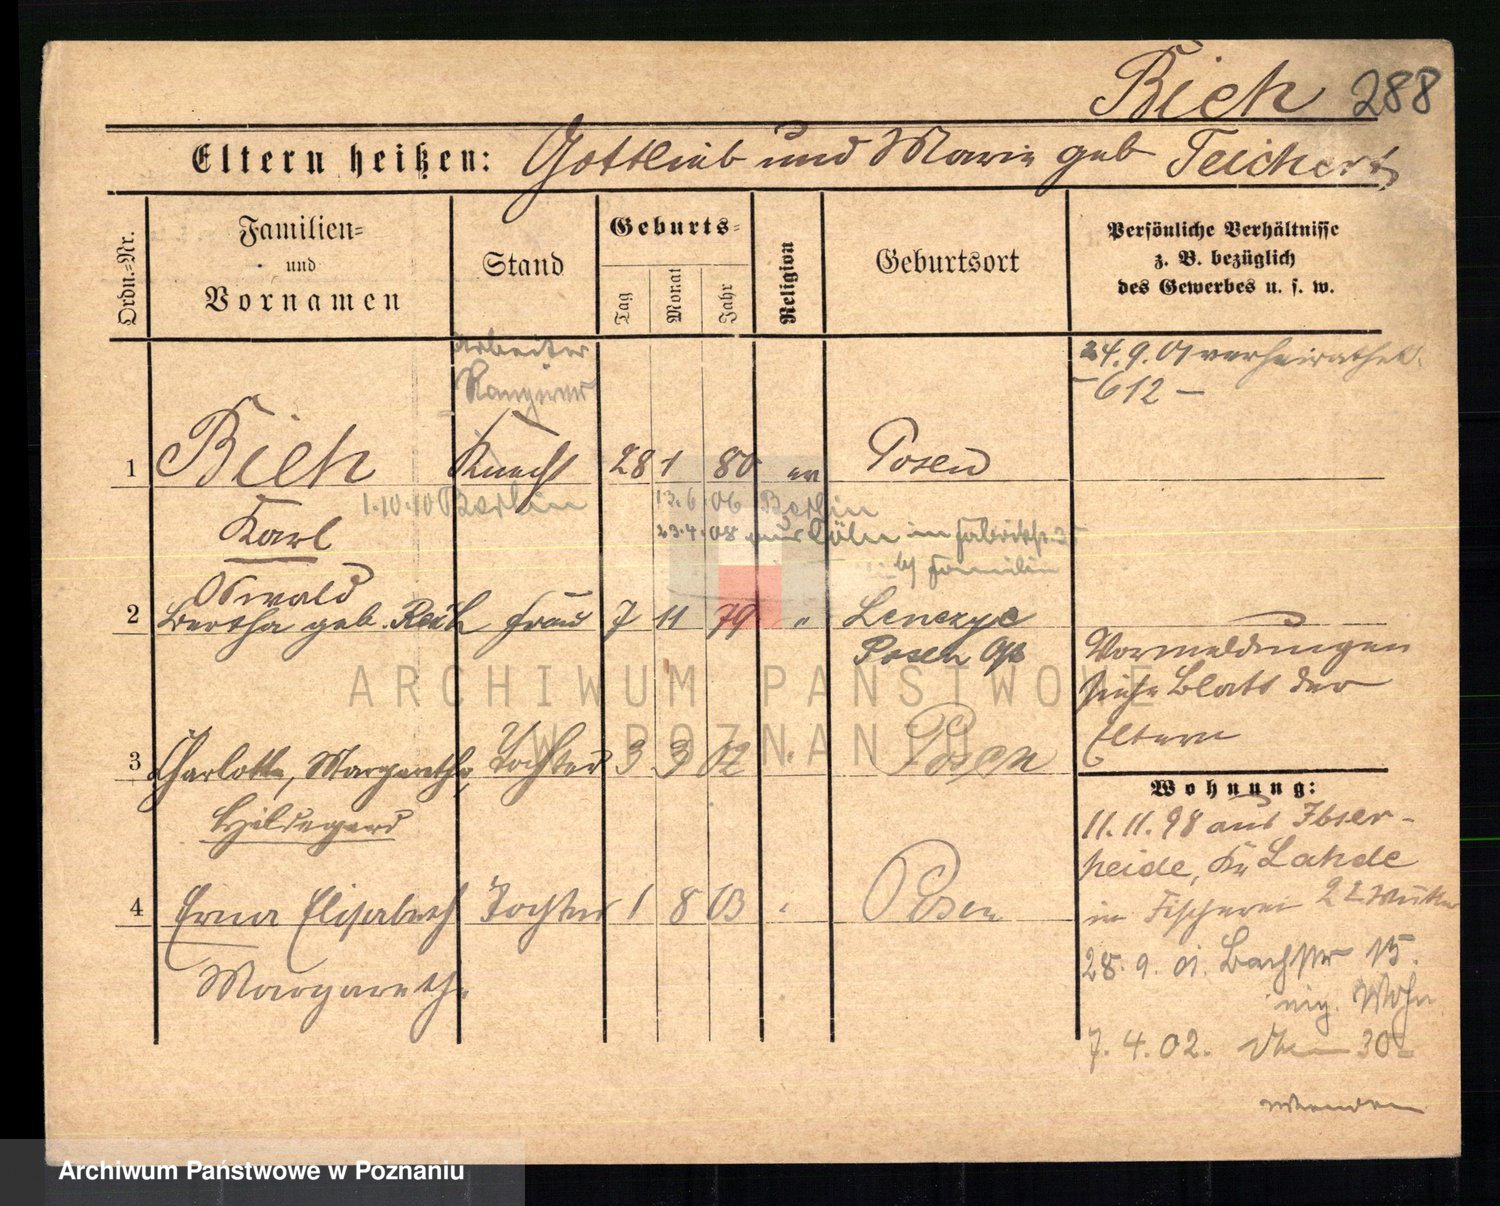 Bieh 288
Eltern heißen: Gottlieb und Marie geb Teichert
Ordn.=Nr.
Familien=
und
Vornamen
Stand
Geburts=
Tag
Monat
Jahr
Religion
Geburtsort
Persönliche Verhältnisse
z. B. bezüglich
des Gewerbes u. s. w.
Arbeiter
Rangierer
24.9.01 verheirathet.
- 612 -
1 Bieh Knecht 28 1 80 ev Posen
1.10.10 Berlin 13.6.06 Berlin
Karl
23.4.08 aus Cöln in Fabrikstr. 35
bei Familie
Oswald
2 Bertha geb. Frau 7 11 79 " Lenczyc
Posen Ost
Vormeldungen
siehe Blatt der
Eltern
3 Charlotte, Margarethe, Tochter 3 3 02 " Posen
Hildegard
Wohnung:
11.11.98 aus
heide,
in Fischerei 22
4 Erna Elisabeth Tochter 1 8 03 " Posen
Margarethe
28.9.01. Bachstr 15.
eig. Wohn
7.4.02. 30
wenden
ARCHIWUM PAŃSTWOWE
W POZNANIU
Archiwum Państwowe w Poznaniu